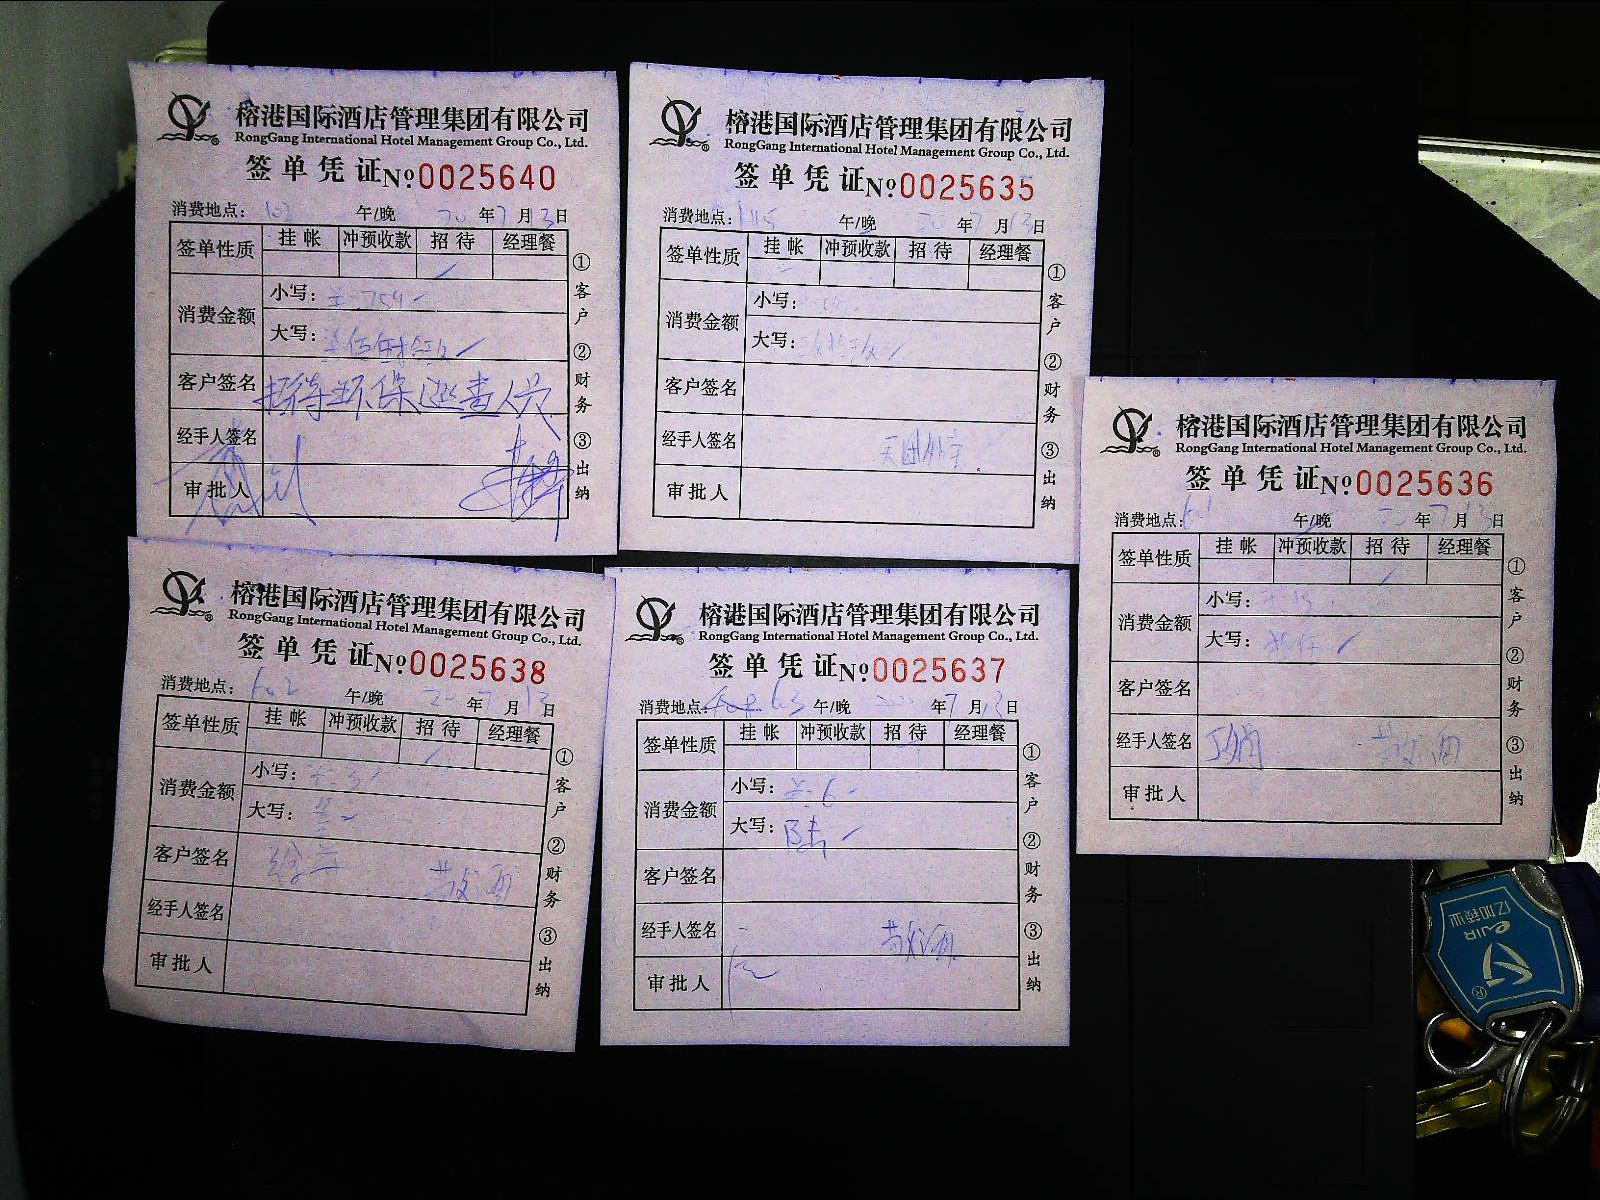 榕港国际酒店管理集团有限公司
RongGang International Hotel Management Group Co., Ltd.
签单凭证№0025640
消费地点: 102 午/晚 20年7月13日
签单性质 挂帐 冲预收款 招待 经理餐
消费金额
小写:
大写:
客户签名 招待环保巡查人员
经手人签名
审批人
①客户 ②财务 ③出纳
榕港国际酒店管理集团有限公司
RongGang International Hotel Management Group Co., Ltd.
签单凭证№0025635
消费地点: 午/晚 20年7月13日
签单性质 挂帐 冲预收款 招待 经理餐
消费金额
小写:
大写:
客户签名
经手人签名
审批人
①客户 ②财务 ③出纳
榕港国际酒店管理集团有限公司
RongGang International Hotel Management Group Co., Ltd.
签单凭证№0025636
消费地点: 午/晚 20年7月13日
签单性质 挂帐 冲预收款 招待 经理餐
消费金额
小写:
大写:
客户签名
经手人签名
审批人
①客户 ②财务 ③出纳
榕港国际酒店管理集团有限公司
RongGang International Hotel Management Group Co., Ltd.
签单凭证№0025638
消费地点: 602 午/晚 20年7月13日
签单性质 挂帐 冲预收款 招待 经理餐
消费金额
小写:
大写:
客户签名
经手人签名
审批人
①客户 ②财务 ③出纳
榕港国际酒店管理集团有限公司
RongGang International Hotel Management Group Co., Ltd.
签单凭证№0025637
消费地点: 午/晚 年7月13日
签单性质 挂帐 冲预收款 招待 经理餐
消费金额
小写: 6
大写: 陆
客户签名
经手人签名
审批人
①客户 ②财务 ③出纳
亿加锁业
eJIR